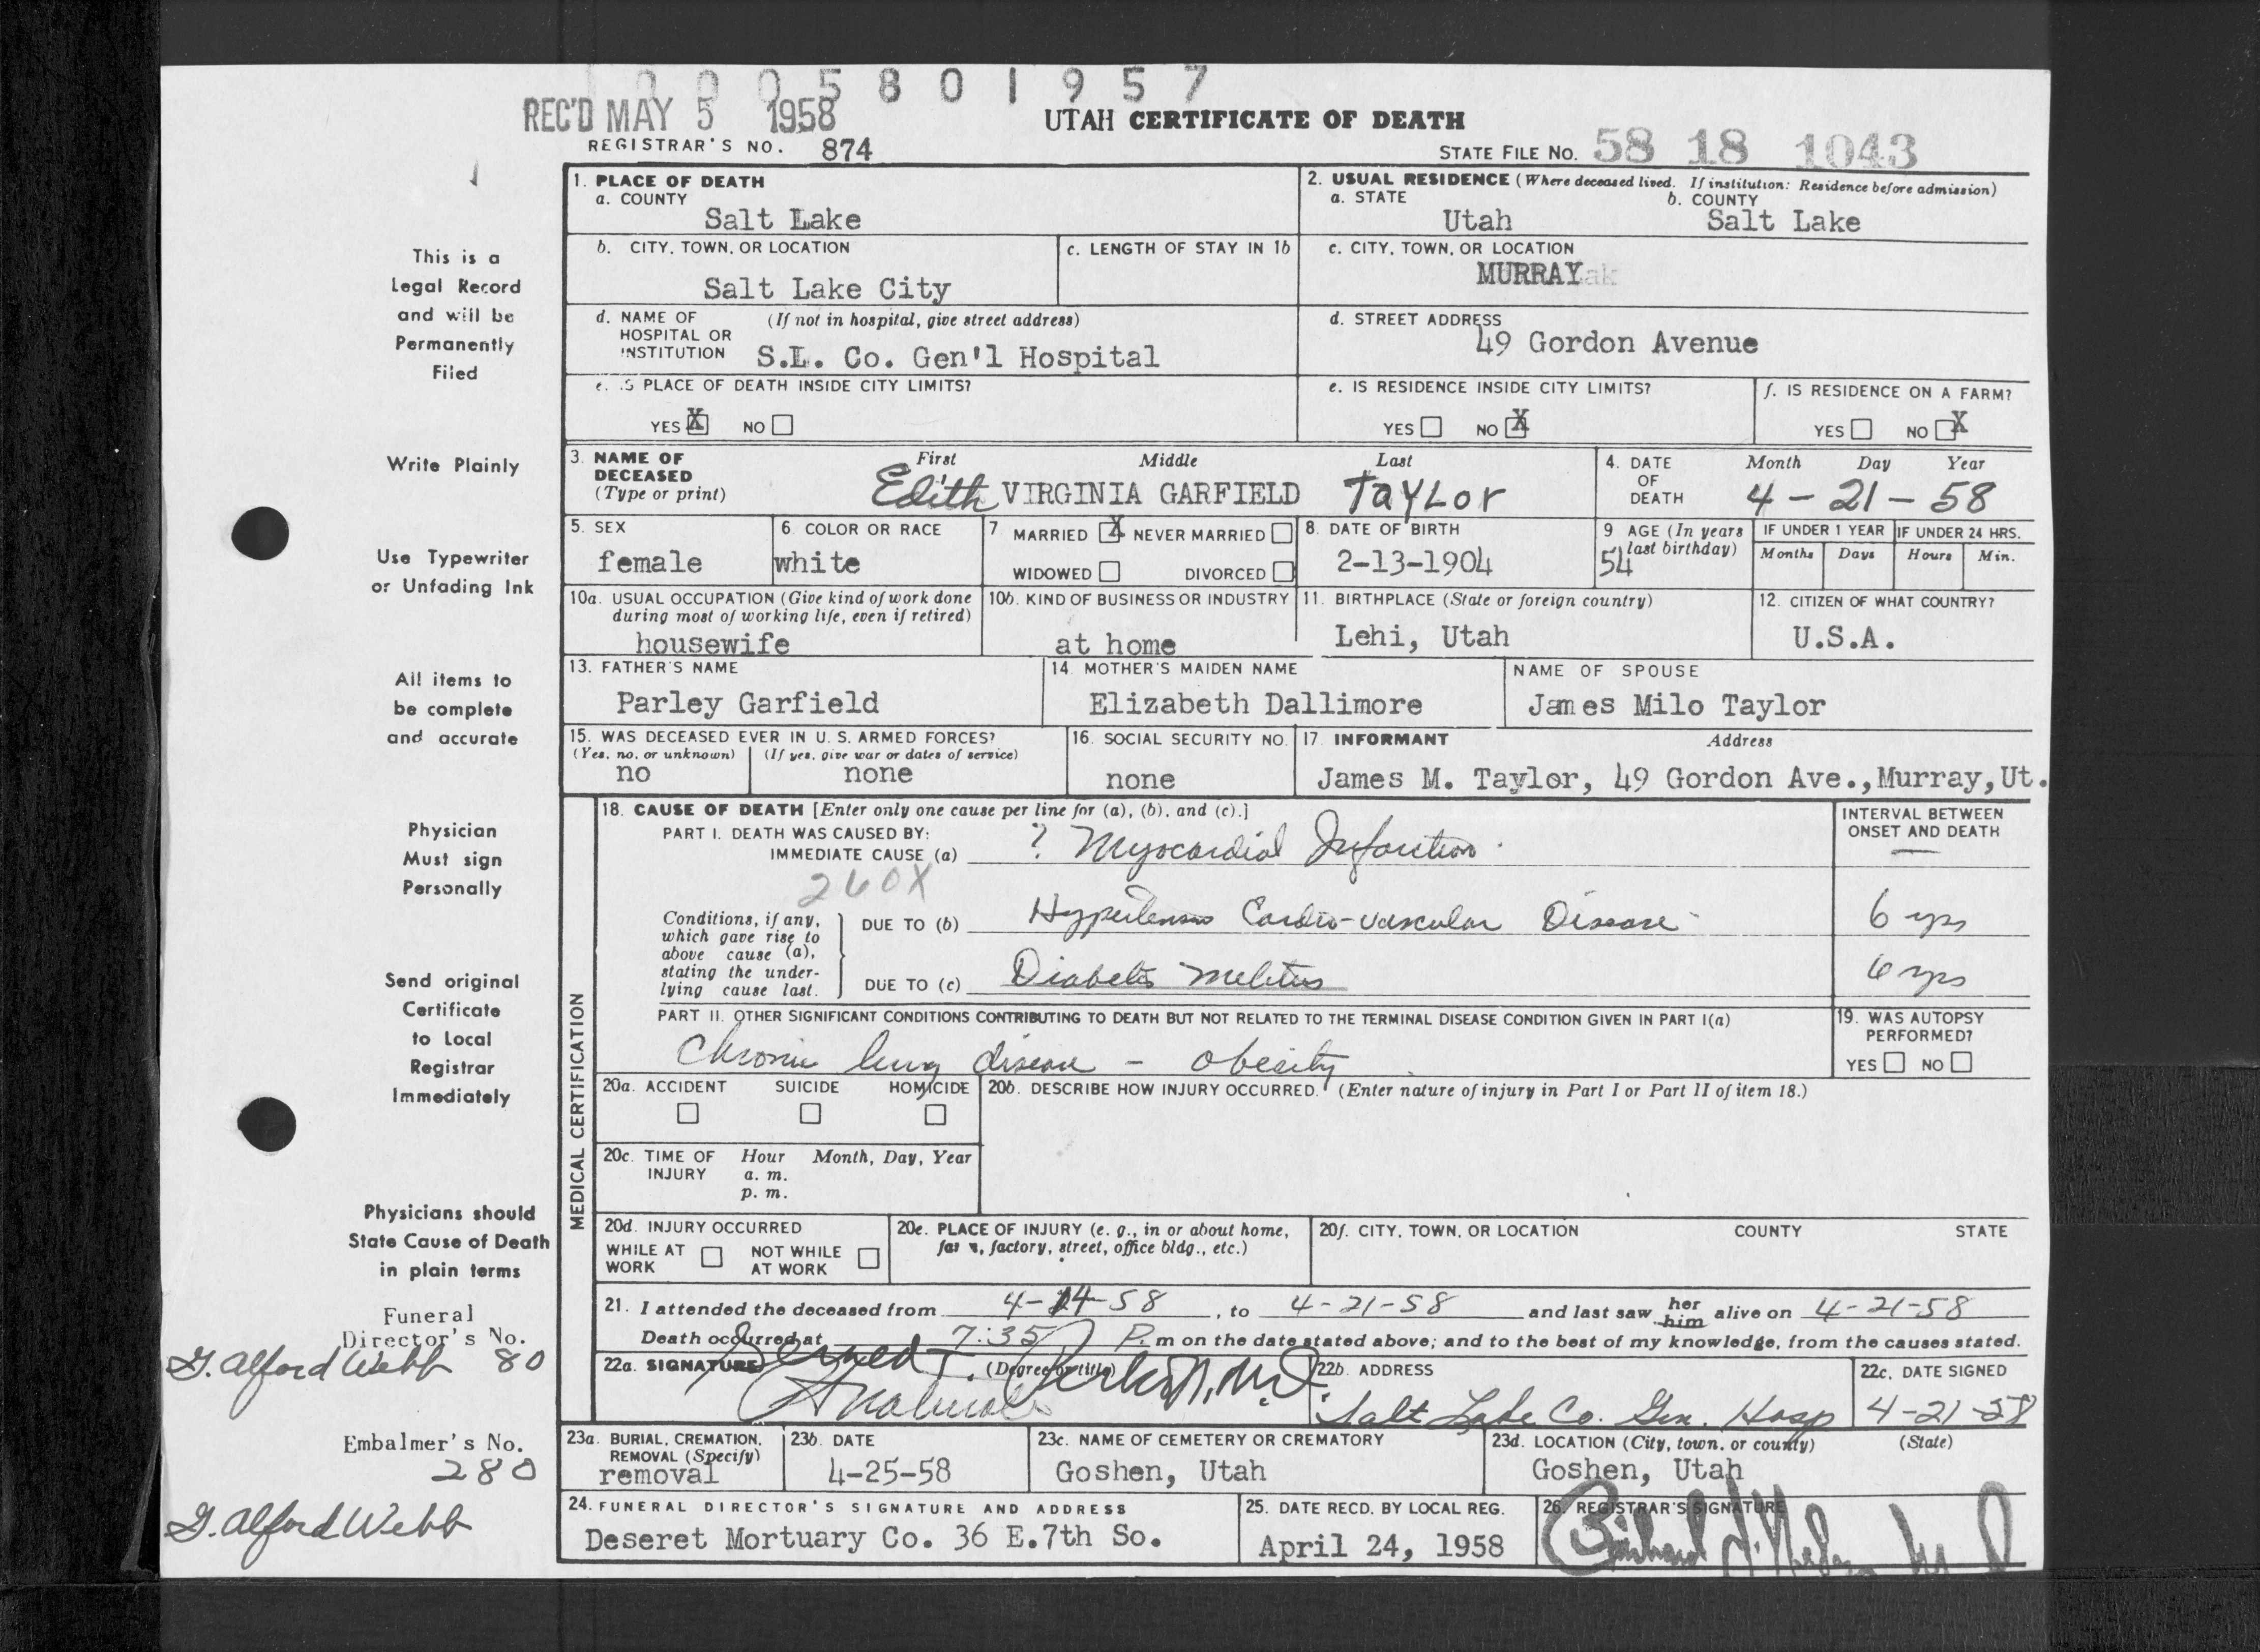 0005801957
REC'D MAY 5 1958
UTAH CERTIFICATE OF DEATH
REGISTRAR'S NO. 874
STATE FILE NO. 58 18 1043
1. PLACE OF DEATH
a. COUNTY
Salt Lake
2. USUAL RESIDENCE (Where deceased lived. If institution: Residence before admission)
a. STATE b. COUNTY
Utah Salt Lake
b. CITY, TOWN, OR LOCATION
Salt Lake City
c. LENGTH OF STAY IN 1b
c. CITY, TOWN, OR LOCATION
MURRAY
d. NAME OF (If not in hospital, give street address)
HOSPITAL OR
INSTITUTION S.L. Co. Gen'l Hospital
d. STREET ADDRESS
49 Gordon Avenue
e. IS PLACE OF DEATH INSIDE CITY LIMITS?
YES X NO
e. IS RESIDENCE INSIDE CITY LIMITS?
YES NO X
f. IS RESIDENCE ON A FARM?
YES NO X
3. NAME OF
DECEASED
(Type or print)
First Middle Last
Edith VIRGINIA GARFIELD TayLor
4. DATE
OF
DEATH
Month Day Year
4 - 21 - 58
5. SEX
female
6. COLOR OR RACE
white
7 MARRIED X NEVER MARRIED
WIDOWED DIVORCED
8. DATE OF BIRTH
2-13-1904
9 AGE (In years
last birthday)
54
IF UNDER 1 YEAR IF UNDER 24 HRS.
Months Days Hours Min.
10a. USUAL OCCUPATION (Give kind of work done
during most of working life, even if retired)
housewife
10b. KIND OF BUSINESS OR INDUSTRY
at home
11. BIRTHPLACE (State or foreign country)
Lehi, Utah
12. CITIZEN OF WHAT COUNTRY?
U.S.A.
13. FATHER'S NAME
Parley Garfield
14. MOTHER'S MAIDEN NAME
Elizabeth Dallimore
NAME OF SPOUSE
James Milo Taylor
15. WAS DECEASED EVER IN U. S. ARMED FORCES?
(Yes, no, or unknown) (If yes, give war or dates of service)
no none
16. SOCIAL SECURITY NO.
none
17. INFORMANT Address
James M. Taylor, 49 Gordon Ave.,Murray,Ut.
MEDICAL CERTIFICATION
18. CAUSE OF DEATH [Enter only one cause per line for (a), (b), and (c).]
PART I. DEATH WAS CAUSED BY:
IMMEDIATE CAUSE (a) ? Myocardial Infarction
INTERVAL BETWEEN
ONSET AND DEATH
—
260X
Conditions, if any,
which gave rise to
above cause (a),
stating the under-
lying cause last.
DUE TO (b) Hypertensive Cardio-vascular Disease 6 yrs
DUE TO (c) Diabetes Melitus 6 yrs
PART II. OTHER SIGNIFICANT CONDITIONS CONTRIBUTING TO DEATH BUT NOT RELATED TO THE TERMINAL DISEASE CONDITION GIVEN IN PART I(a)
Chronic lung disease - obesity
19. WAS AUTOPSY
PERFORMED?
YES NO
20a. ACCIDENT SUICIDE HOMICIDE
20b. DESCRIBE HOW INJURY OCCURRED. (Enter nature of injury in Part I or Part II of item 18.)
20c. TIME OF Hour Month, Day, Year
INJURY a. m.
p. m.
20d. INJURY OCCURRED
WHILE AT NOT WHILE
WORK AT WORK
20e. PLACE OF INJURY (e. g., in or about home,
farm, factory, street, office bldg., etc.)
20f. CITY, TOWN, OR LOCATION COUNTY STATE
21. I attended the deceased from 4-14-58, to 4-21-58 and last saw her him alive on 4-21-58
Death occurred at 7:35 P. m on the date stated above; and to the best of my knowledge, from the causes stated.
22a. SIGNATURE (Degree or title)
22b. ADDRESS
Salt Lake Co. Gen. Hosp
22c. DATE SIGNED
4-21-58
23a. BURIAL, CREMATION,
REMOVAL (Specify)
removal
23b. DATE
4-25-58
23c. NAME OF CEMETERY OR CREMATORY
Goshen, Utah
23d. LOCATION (City, town, or county) (State)
Goshen, Utah
24. FUNERAL DIRECTOR'S SIGNATURE AND ADDRESS
Deseret Mortuary Co. 36 E.7th So.
25. DATE RECD. BY LOCAL REG.
April 24, 1958
26. REGISTRAR'S SIGNATURE
This is a
Legal Record
and will be
Permanently
Filed
Write Plainly
Use Typewriter
or Unfading Ink
All items to
be complete
and accurate
Physician
Must sign
Personally
Send original
Certificate
to Local
Registrar
Immediately
Physicians should
State Cause of Death
in plain terms
Funeral
Director's No.
G. Alford Webb 80
Embalmer's No.
280
G. Alford Webb